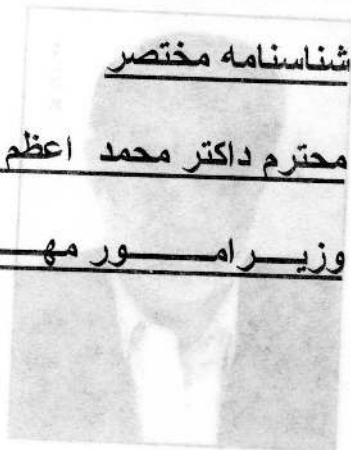 شناسنامه مختصر
محترم داکتر محمد اعظم
وزیر امور